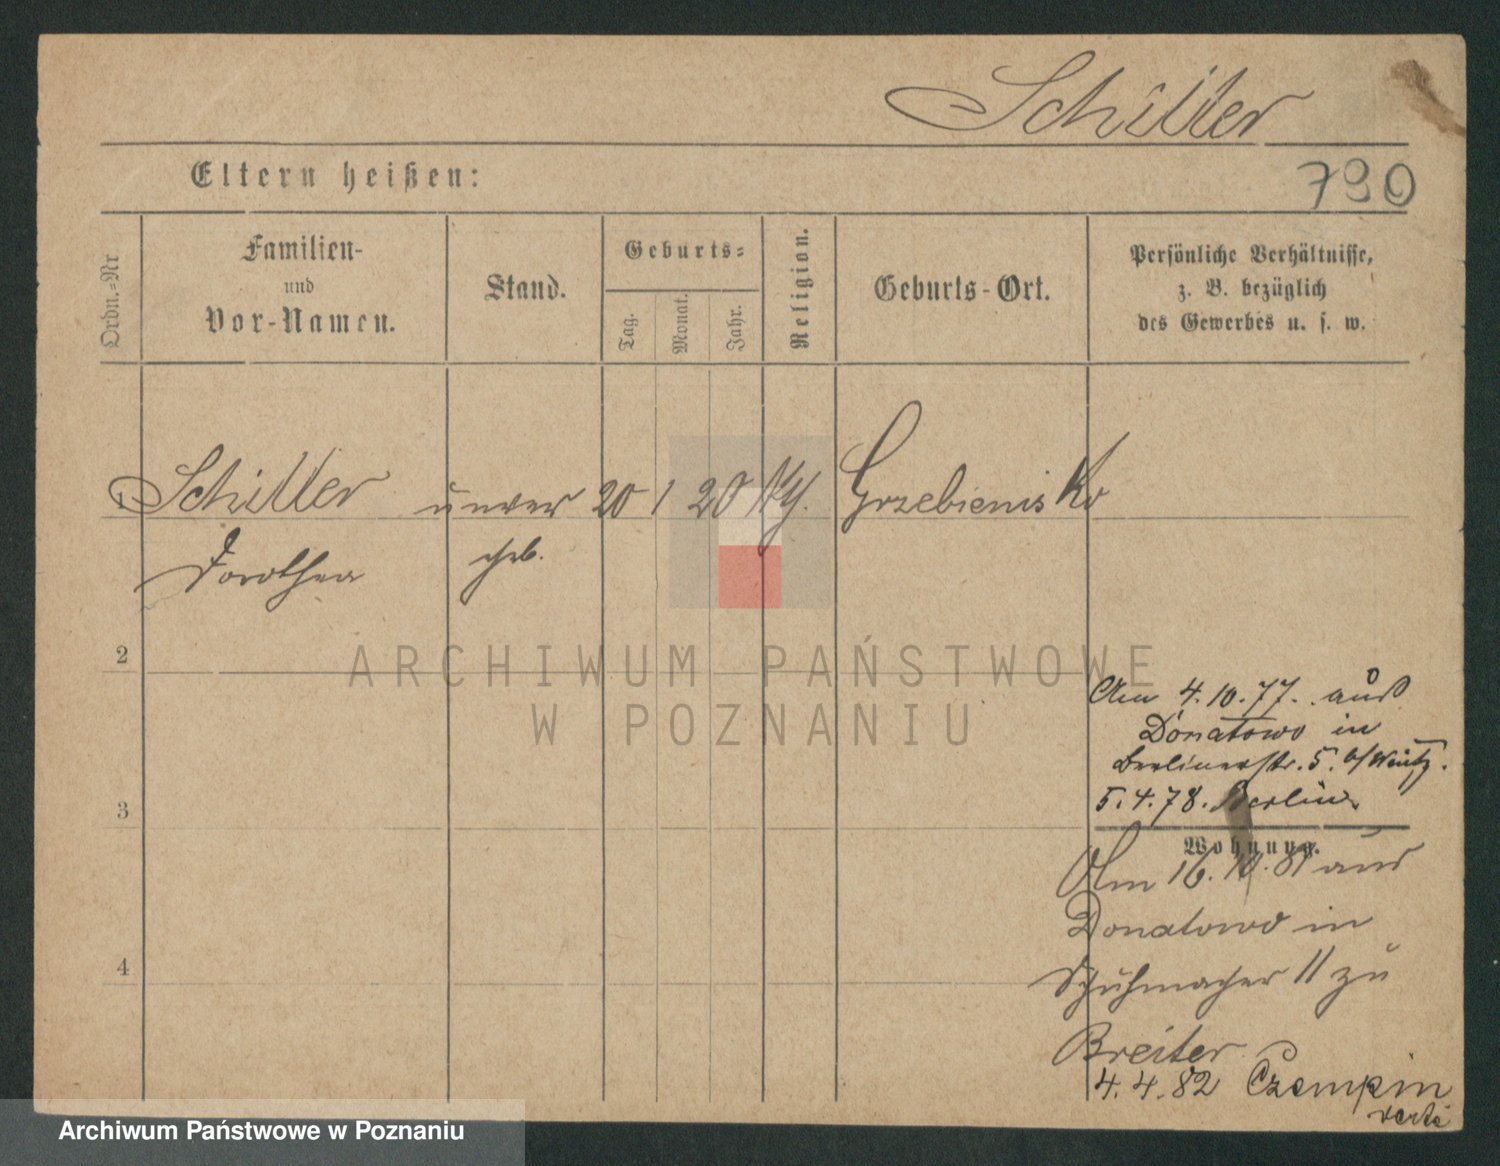 Schiller
Eltern heißen:
790
Ordn.=Nr
Familien-
und
Vor-Namen.
Stand.
Geburts=
Tag.
Monat.
Jahr.
Religion.
Geburts-Ort.
Persönliche Verhältnisse,
z. B. bezüglich
des Gewerbes u. s. w.
Schiller unver 20 1 20 Grzebienisko
Dorothea
2
ARCHIWUM PAŃSTWOWE
W POZNANIU
Am 4.10.77. aus
Donatowo in
Berlinerstr. 5.
5.4.78. Berlin.
3
Wohnung.
Am 16.10.81 aus
Donatowo in
4
Schuhmacher 11 zu
Breiter
4.4.82 Czempin
verte
Archiwum Państwowe w Poznaniu